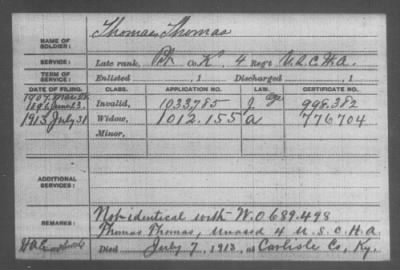 NAME OF SOLDIER: Thomas, Thomas
SERVICE: Late rank, Pvt Co. K, 4 Reg't U.S.C.H.A.
TERM OF SERVICE: Enlisted , 1 Discharged , 1
DATE OF FILING. CLASS. APPLICATION NO. LAW. CERTIFICATE NO.
1907 Invalid, 1033,785 J age 998.382
1913 July 31 Widow, 1012.155 a 776704
Minor,
ADDITIONAL SERVICES:
REMARKS: Not identical with W.O 689.498
Thomas Thomas, Unass'd 4 U.S.C.H.A.
Died July 7, 1913, at Carlisle Co, Ky.